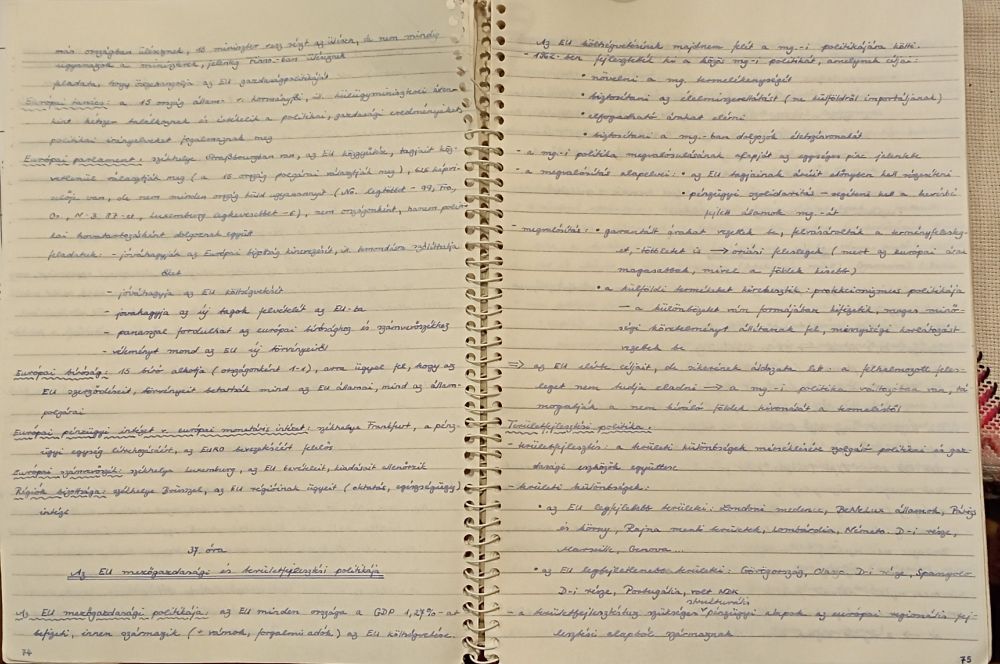 más országban üléseznek, 15 miniszter vesz részt az ülésen, de nem mindig
ugyanazok a miniszterek, jelenleg
feladata, hogy összehangolja az EU gazdaságpolitikáját
Európai tanács: a 15 ország állam- v. kormányfői, ill. külügyminiszterei éven-
ként kétszer találkoznak és értékelik a politikai, gazdasági eredményeket,
politikai irányelveket fogalmaznak meg
Európai parlament: székhelye Straßbourgban van, az EU közgyűlése, tagjait köz-
vetlenül választják meg (a 15 ország polgárai választják meg), 626 képvi-
selője van, de nem minden ország küld ugyanannyit (No. legtöbbet - 99, Fra,
Ol, N-B 87-et, Luxemburg legkevesebbet - 6), nem országonként, hanem politi-
kai hovatartozásként dolgoznak együtt
feladatuk: - jóváhagyják az Európai Bizottság kinevezését, ill. lemondásra szólíthatja
őket
- jóváhagyja az EU költségvetését
- jóváhagyja az új tagok felvételét az EU-ba
- panasszal fordulhat az európai bírósághoz és számvevőszékhez
- véleményt mond az EU új törvényeiről
Európai bíróság: 15 bíró alkotja (országonként 1-1), arra ügyel fel, hogy az
EU szerződéseit, törvényeit betartsák mind az EU államai, mind az állam-
polgárai
Európai pénzügyi intézet v. európai monetáris intézet: székhelye Frankfurt, a pénz-
ügyi egység létrehozásáért, az EURO bevezetéséért felelős
Európai számvevőszék: székhelye Luxemburg, az EU bevételeit, kiadásait ellenőrzik
Régiók bizottsága: székhelye Brüsszel, az EU régióinak ügyeit (oktatás, egészségügy)
intézi
37. óra
Az EU mezőgazdasági és területfejlesztési politikája
Az EU mezőgazdasági politikája: az EU minden országa a GDP 1,27%-át
befizeti, innen származik (+ vámok, forgalmi adók) az EU költségvetése.
74
Az EU költségvetésének majdnem felét a mg.-i politikájára költi.
- 1962-ben fejlesztették ki a közös mg-i politikát, amelynek céljai:
• növelni a mg. termelékenységét
• biztosítani az élelmiszerellátást (ne külföldről importáljanak)
• elfogadható árakat elérni
• biztosítani a mg.-ban dolgozók életszínvonalát
- a mg.-i politika megvalósulásának alapját az egységes piac jelentette
- a megvalósítás alapelvei: • az EU tagjainak áruit előnyben kell részesíteni
• pénzügyi szolidaritás - segíteni kell a kevésbé
fejlett államok mg.-át
- megvalósítás: • garantált árakat vezettek be, felvásárolták a terményfelesleg-
et, többletet is → óriási feleslegek (mert az európai árai
magasabbak, mivel a földek kisebb)
• a külföldi termékeket kirekesztik: protekcionizmus politikája
- a különbözetet vám formájában kifizetik, magas minő-
ségi követelményt állítanak fel, mennyiségi korlátozást
vezetnek be
⇒ az EU elérte céljait, de sikerének áldozata lett: a felhalmozott feles-
leget nem tudja eladni → a mg.-i politika változóban van, tá-
mogatják a nem kiváló földek kivonását a termelésből
Területfejlesztési politika:
- területfejlesztés: a területi különbségek mérséklésére szolgáló politikai és gaz-
dasági eszközök együttese
- területi különbségek:
• az EU legfejlettebb területei: Londoni medence, BeNeLux államok, Párizs
és körny, Rajna menti területek, Lombardia, Németo. D-i része,
Marseille, Genova...
• az EU legfejletlenebb területei: Görögország, Olaszo. D-i része, Spanyolo.
D-i része, Portugália, volt NDK
strukturális
- a területfejlesztéshez szükséges pénzügyi alapok az európai regionális fej-
lesztési alapból származnak
75